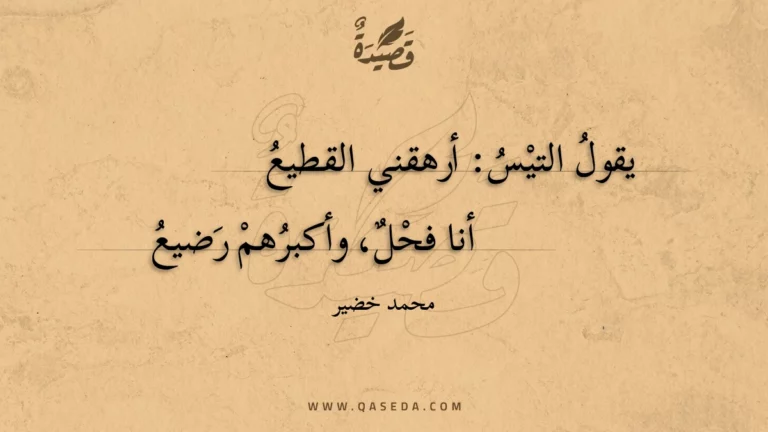 قَصِيْدَةٌ
يقولُ التيْسُ: أرهقني القطيعُ
أنا فحْلٌ، وأكبرُهمْ رَضيعُ
محمد خضير
WWW.QASEDA.COM